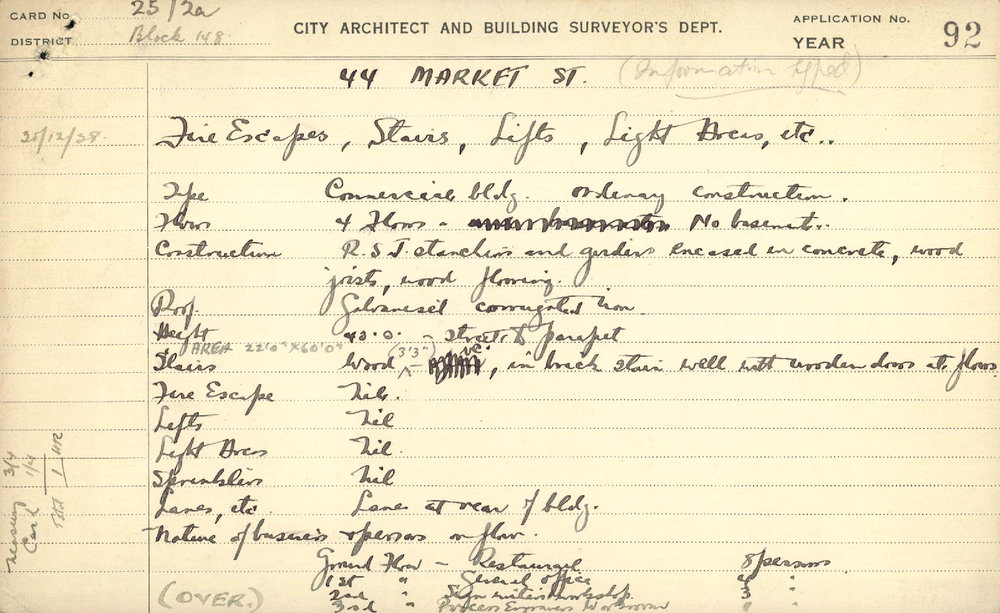 CARD No. 25/2a
DISTRICT Block 148.
CITY ARCHITECT AND BUILDING SURVEYOR'S DEPT.
APPLICATION No.
YEAR 92
44 MARKET ST. (Information typed)
20/12/28. Fire Escapes, Stairs, Lifts, Light Areas, etc..
Type Commercial bldg. Ordinary construction.
Floors 4 Floors - No basement.
Construction R.S.J. stanchions and girders encased in concrete, wood
joists, wood flooring.
Roof. Galvanised corrugated iron
Height 40'.0" - street to parapet
AREA 22'0" x 60'0"
Stairs Wood (3'3"), in brick stair well with wooden doors at floors
Fire Escape Nil.
Lifts Nil
Light Areas Nil.
Sprinklers Nil
Lanes, etc. Lane at rear of bldg.
Nature of business & persons on floor.
Ground Floor - Restaurant 8 persons
1st " General office "
2nd " Sign writers workshop 3 "
3rd " Process Engravers Workroom "
(OVER.)
Measuring 3/4
Card 1/4
1 HR